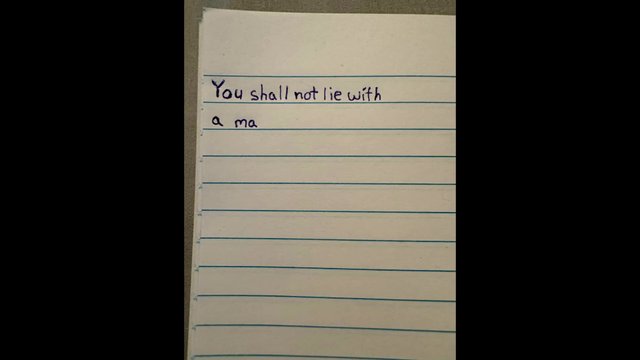 You shall not lie with
a ma